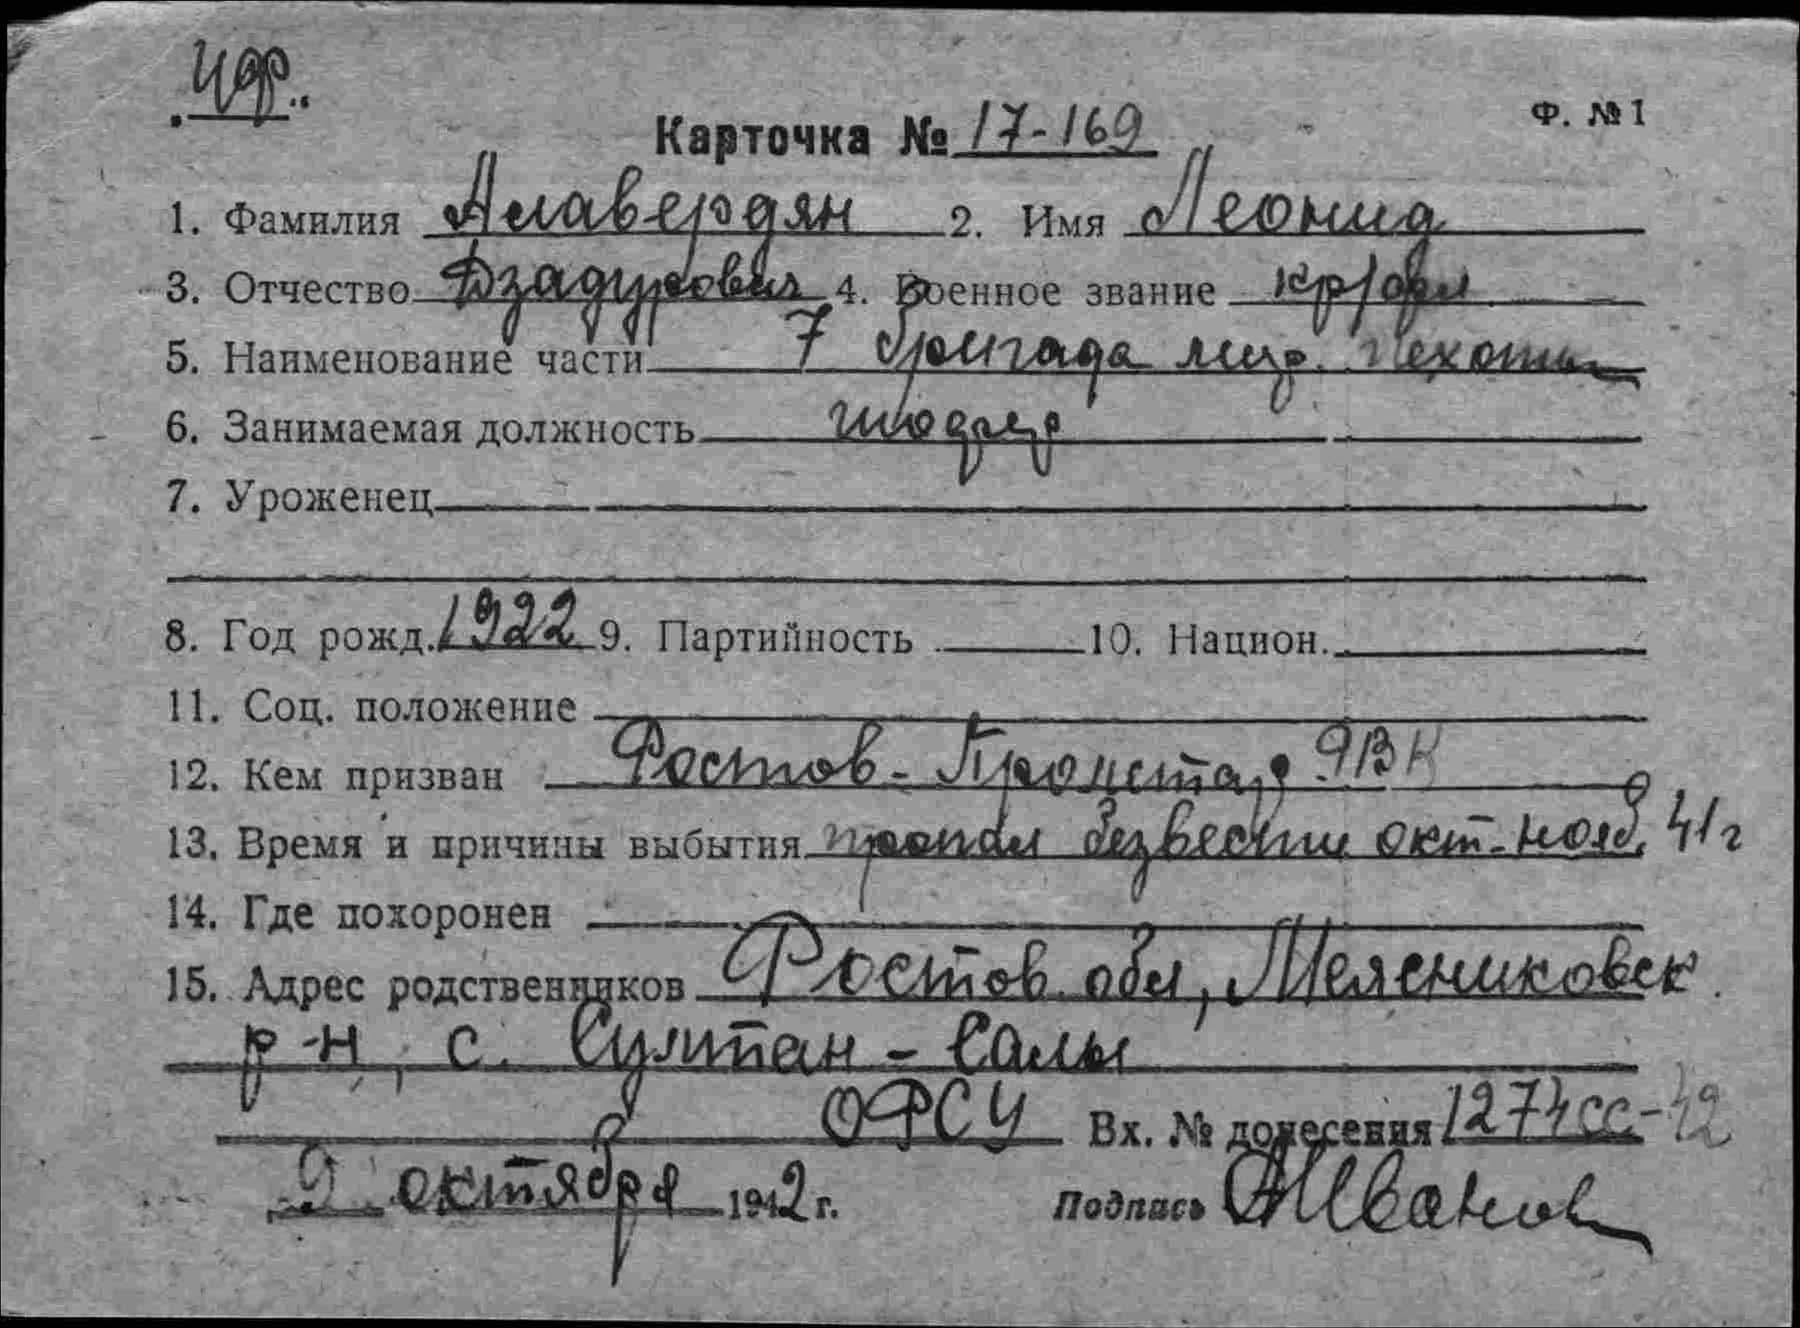 Карточка № 17-169
Ф. № 1
1. Фамилия Алавердян 2. Имя Леонид
3. Отчество Дзадурович 4. Военное звание кр/арм
5. Наименование части 7 бригада мор. пехоты
6. Занимаемая должность
7. Уроженец
8. Год рожд. 1922 9. Партийность 10. Национ.
11. Соц. положение
12. Кем призван Ростов-Пролетар. РВК
13. Время и причины выбытия пропал безвести окт-нояб. 41 г
14. Где похоронен
15. Адрес родственников Ростов. обл, Мясниковск.
р-н, с. Султан-Салы
ОФСУ Вх. № донесения 1274сс-42
9 октября 1942 г. Подпись Иванов